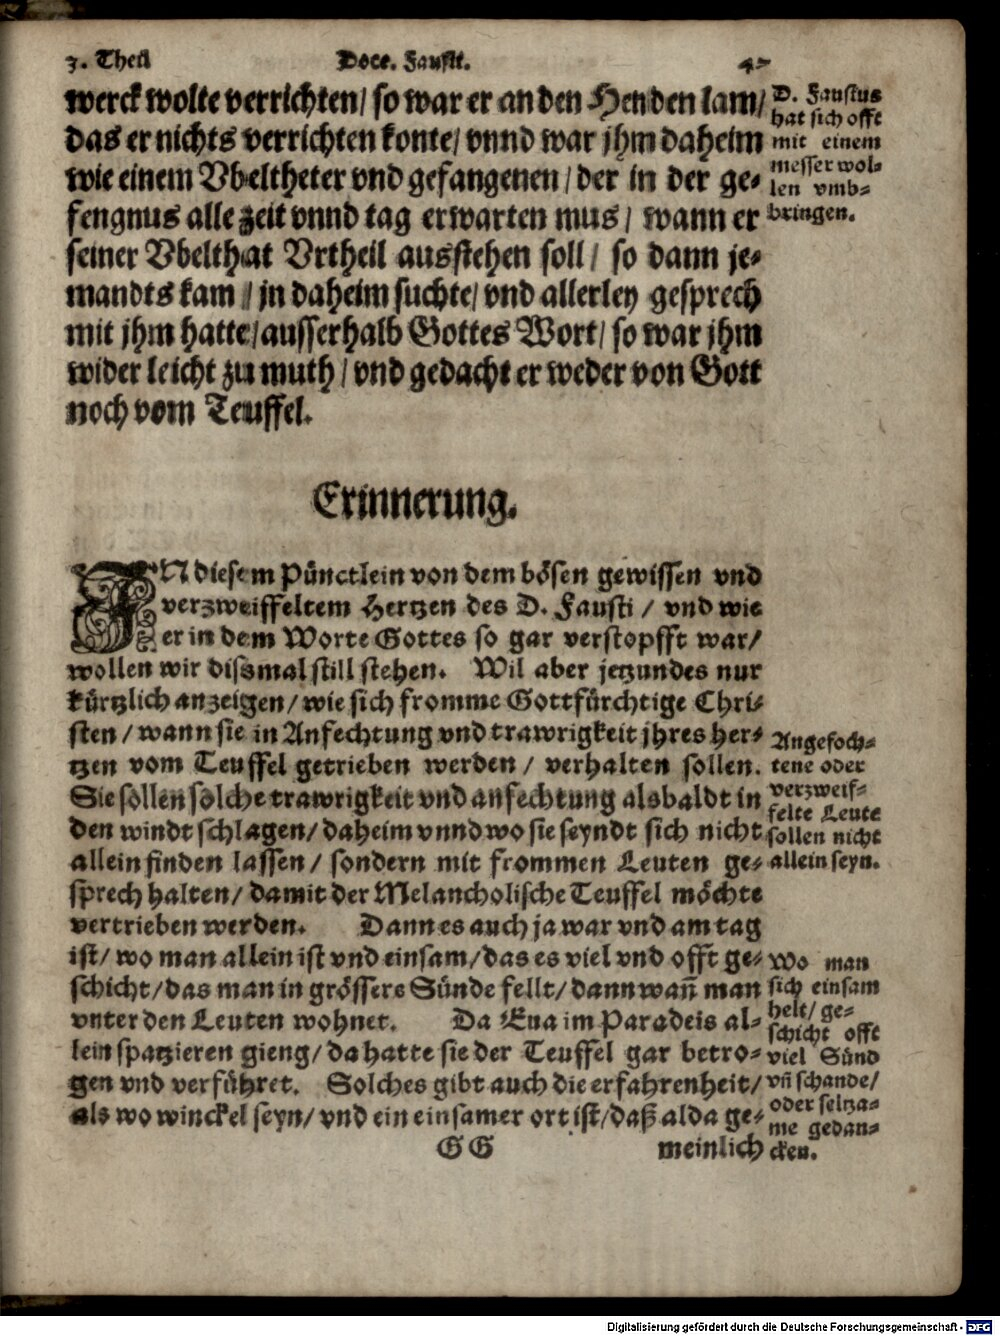 3. Theil Doct. Fausti.
werck wolte verrichten/ so war er an den Henden lam/
das er nichts verrichten konte/ vnnd war jhm daheim
wie einem Vbeltheter vnd gefangenen/ der in der ge-
fengnus alle zeit vnnd tag erwarten mus/ wann er
seiner Vbelthat Vrtheil ausstehen soll/ so dann je-
mandts kam/ jn daheim suchte/ vnd allerley gesprech
mit jhm hatte/ ausserhalb Gottes Wort/ so war jhm
wider leicht zu muth/ vnd gedacht er weder von Gott
noch vom Teuffel.
D. Faustus
hat sich offt
mit einem
messer wol-
len vmb-
bringen.
Erinnerung.
IN diesem Pünctlein von dem bösen gewissen vnd
verzweiffeltem Hertzen des D. Fausti/ vnd wie
er in dem Worte Gottes so gar verstopfft war/
wollen wir dissmal still stehen. Wil aber jetzundes nur
kürtzlich anzeigen/ wie sich fromme Gottfürchtige Chri-
sten/ wann sie in Anfechtung vnd trawrigkeit jhres her-
tzen vom Teuffel getrieben werden/ verhalten sollen.
Sie sollen solche trawrigkeit vnd anfechtung alsbaldt in
den windt schlagen/ daheim vnnd wo sie seyndt sich nicht
allein finden lassen/ sondern mit frommen Leuten ge-
sprech halten/ damit der Melancholische Teuffel möchte
vertrieben werden. Dann es auch ja war vnd am tag
ist/ wo man allein ist vnd einsam/ das es viel vnd offt ge-
schicht/ das man in grössere Sünde fellt/ dann wañ man
vnter den Leuten wohnet. Da Eua im Paradeis al-
lein spatzieren gieng/ da hatte sie der Teuffel gar betro-
gen vnd verführet. Solches gibt auch die erfahrenheit/
als wo winckel seyn/ vnd ein einsamer ort ist/ daß alda ge-
Angefoch-
tene oder
verzweif-
felte Leute
sollen nicht
allein seyn.
Wo man
sich einsam
helt/ ge-
schicht offt
viel Sünd
vñ schande/
oder seltza-
me gedan-
cken.
GG meinlich
Digitalisierung gefördert durch die Deutsche Forschungsgemeinschaft - DFG